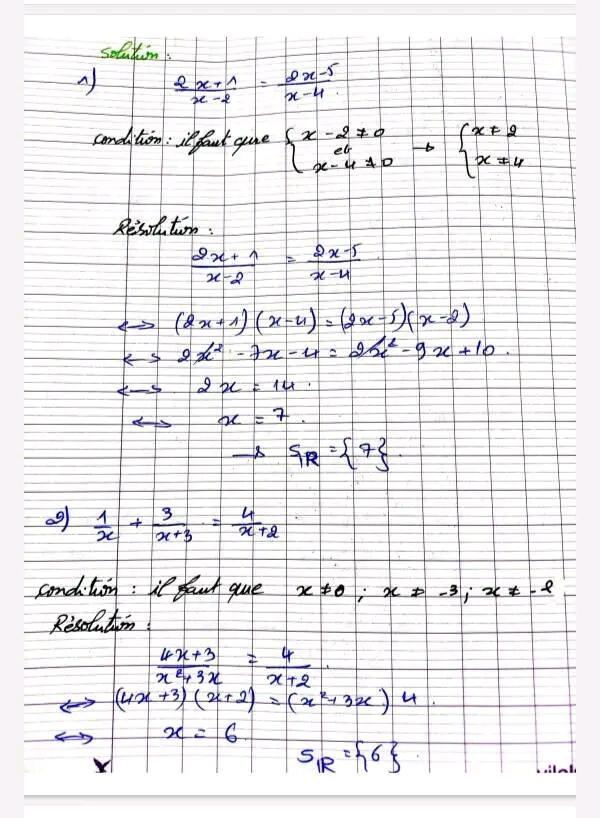 Solution :
1) (2x+1)/(x-2) = (2x-5)/(x-4)
condition : il faut que { x-2≠0 et x-4≠0 → { x≠2 x≠4
Résolution :
(2x+1)/(x-2) = (2x-5)/(x-4)
↔ (2x+1)(x-4)=(2x-5)(x-2)
↔ 2x² -7x-4 = 2x² -9x+10.
↔ 2x = 14.
↔ x = 7.
→ S_IR = {7}.
2) 1/x + 3/(x+3) = 4/(x+2)
condition : il faut que x≠0 ; x ≠ -3 ; x ≠ -2
Résolution :
(4x+3)/(x²+3x) = 4/(x+2)
↔ (4x+3)(x+2)=(x²+3x)4.
↔ x = 6
S_IR = {6}.